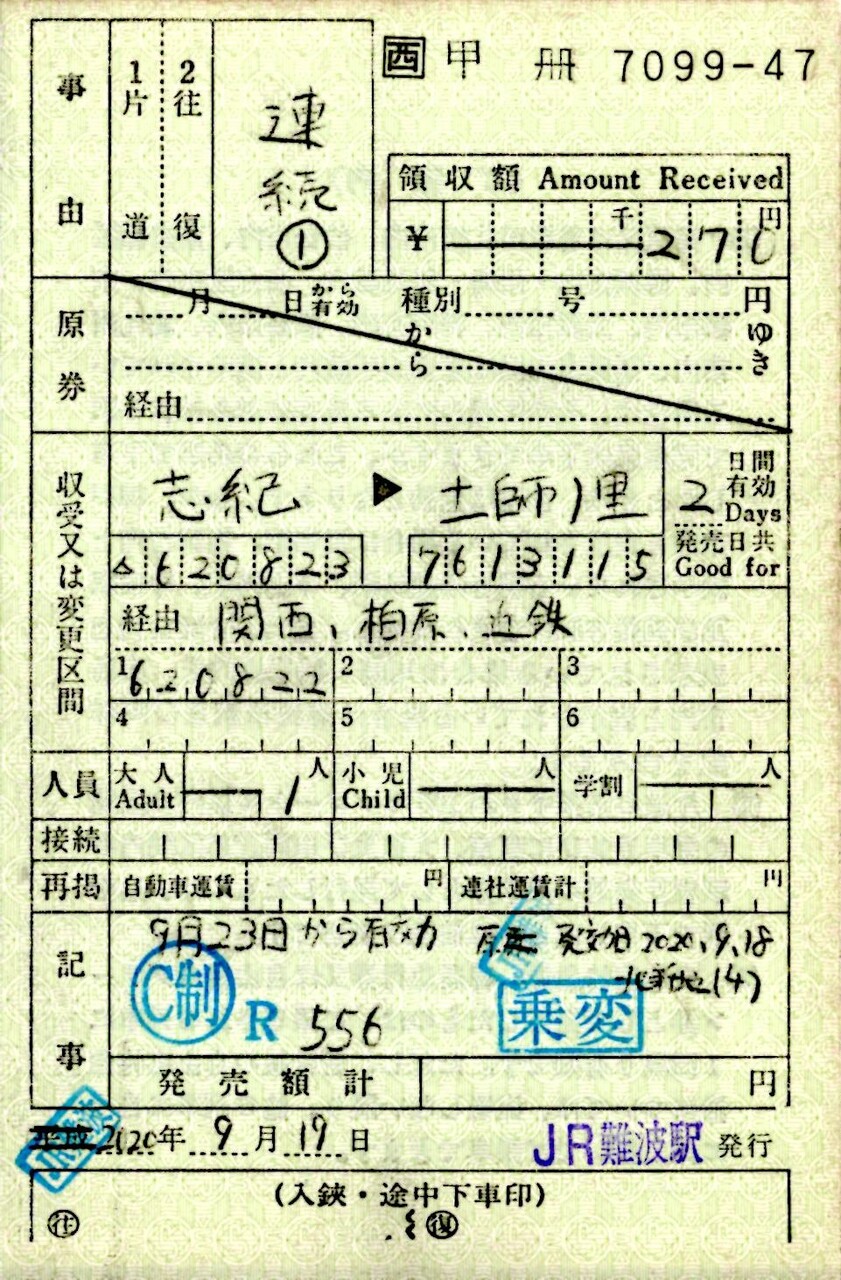 西 甲 冊 7099-47
事由
1片道
2往復
連続
①
領収額 Amount Received
¥ 千 270 円
原券
月 日から有効 種別 号 円
から ゆき
経由
収受又は変更区間
志紀 ▶ 土師ノ里
2 日間有効 Days
発売日共 Good for
△620823 7613115
経由 関西、柏原、近鉄
1 620822 2 3
4 5 6
人員 大人 Adult 1人 小児 Child 人 学割 人
接続
再掲 自動車運賃 円 連社運賃計 円
記事
9月23日から有効 2020.9.18
(4)
C制 R 556 乗変
発売額計 円
平成 2020年 9月19日 JR難波駅 発行
(入鋏・途中下車印)
往 復